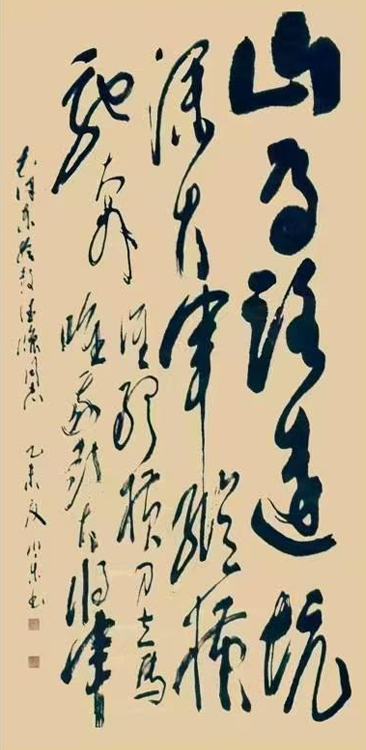 山高路遠坑
深大軍縱橫
馳奔誰敢橫刀立馬
唯我彭大將軍
毛澤東給彭德懷同志 乙未夏 書